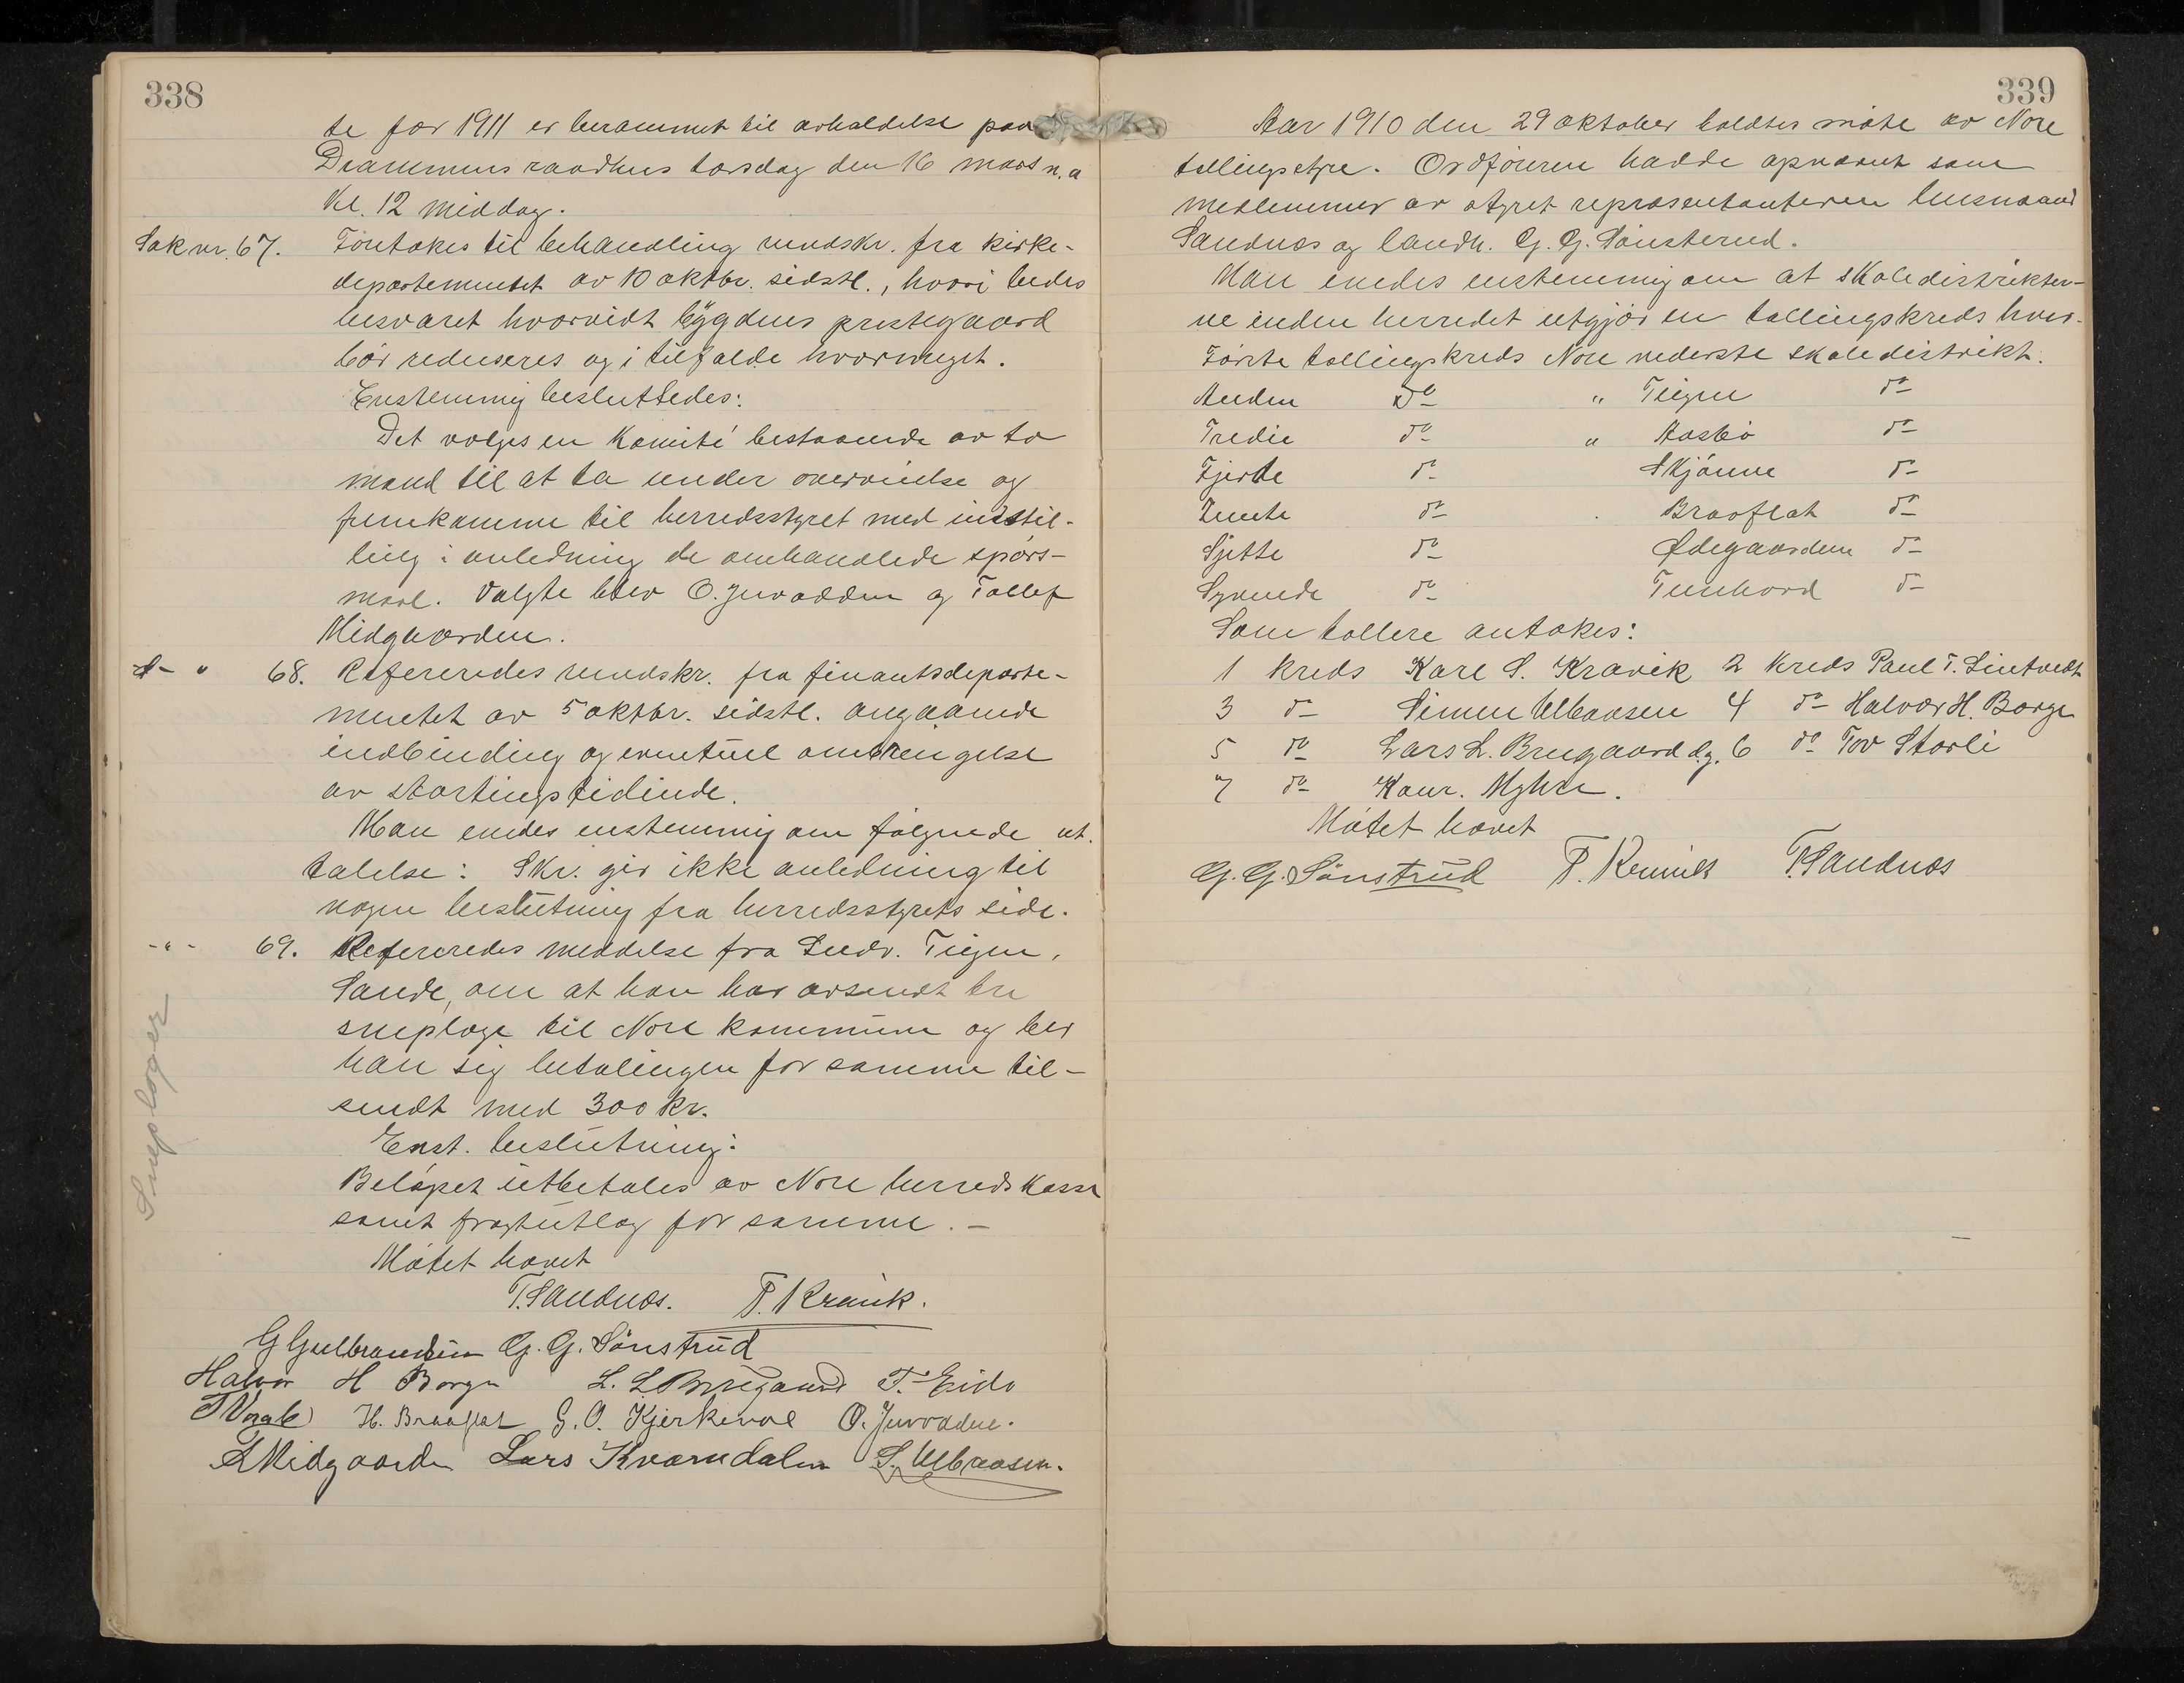 338
te for 1911 er berammet til avholdelse paa
Drammens raadhus torsdag den 16 mars n.a
kl. 12 middag.
Sak nr. 67. Foretokes til behandling rundskr. fra kirke-
departementet av 10 oktbr. sidstl., hvori bedes
besvaret hvorvidt bygdens prestegaard
bør reduseres og i tilfælde hvormeget.
Enstemmig besluttedes:
Det vælges en komité bestaaende av to
mænd til at ta under overveielse og
fremkomme til herredsstyret med indstil-
ling i anledning de omhandlede spørs-
maal. Valgte blev O. Juvodden og Tollef
Midgaarden.
d- " 68. Refereredes rundskr. fra finantsdeparte-
mentet av 5 oktbr. sidstl. angaaende
indbinding og eventuel ombringelse
av stortingstidende.
Man enedes enstemmig om følgende ut-
talelse: Skr. gir ikke anledning til
nogen beslutning fra herredsstyrets side.
-"- 69. Refereredes meddelse fra Ludv. Teigen,
Sande, om at han har avsendt tre
sneploge til Nore kommune og ber
han sig betalingen for samme til-
sendt med 300 kr.
Enst. beslutning:
Beløpet utbetales av Nore herredskasse
samt fragtutlæg for samme. -
Møtet hævet
Sneploger
T. Sandnes. T. Kravik.
G Gulbrandsen G. G. Sønstrud
Halvor H Borge L. L Brugaard T. Eide
H. Braaflat G. O. Kjerkevol O. Juvodden.
T Midgaarden Lars Kvarndalen S. Ulbraasen.
339
Aar 1910 den 29 oktober holdtes møte av Nore
tellingstyre. Ordføreren hadde opnævnt som
medlemmer av styret repræsentanterene husmand
Sandnes og landh. G. G. Sønsterud.
Man enedes enstemmig om at skoledistrikter-
ne inden herredet utgjør en tellingskreds hver.
Første tellingskreds Nore nederste skoledistrikt.
Anden do " Teigen do
Tredie do " Aasbø do
Fjerde do Skjønne do
Femte do Braaflat do
Sjette do Ødegaarden do
Syvende do Tunhovd do
Som tellere antokes:
1 kreds Karl S. Kravik 2 kreds Paul T. Sintvedt
3 do Simen Ulbaasen 4 do Halvor H. Borge
5 do Lars L. Brugaard d.y. 6 do Tov Storli
7 do Konr. Myhre.
Møtet hævet
G. G. Sønstrud T. Kravik T. Sandnes